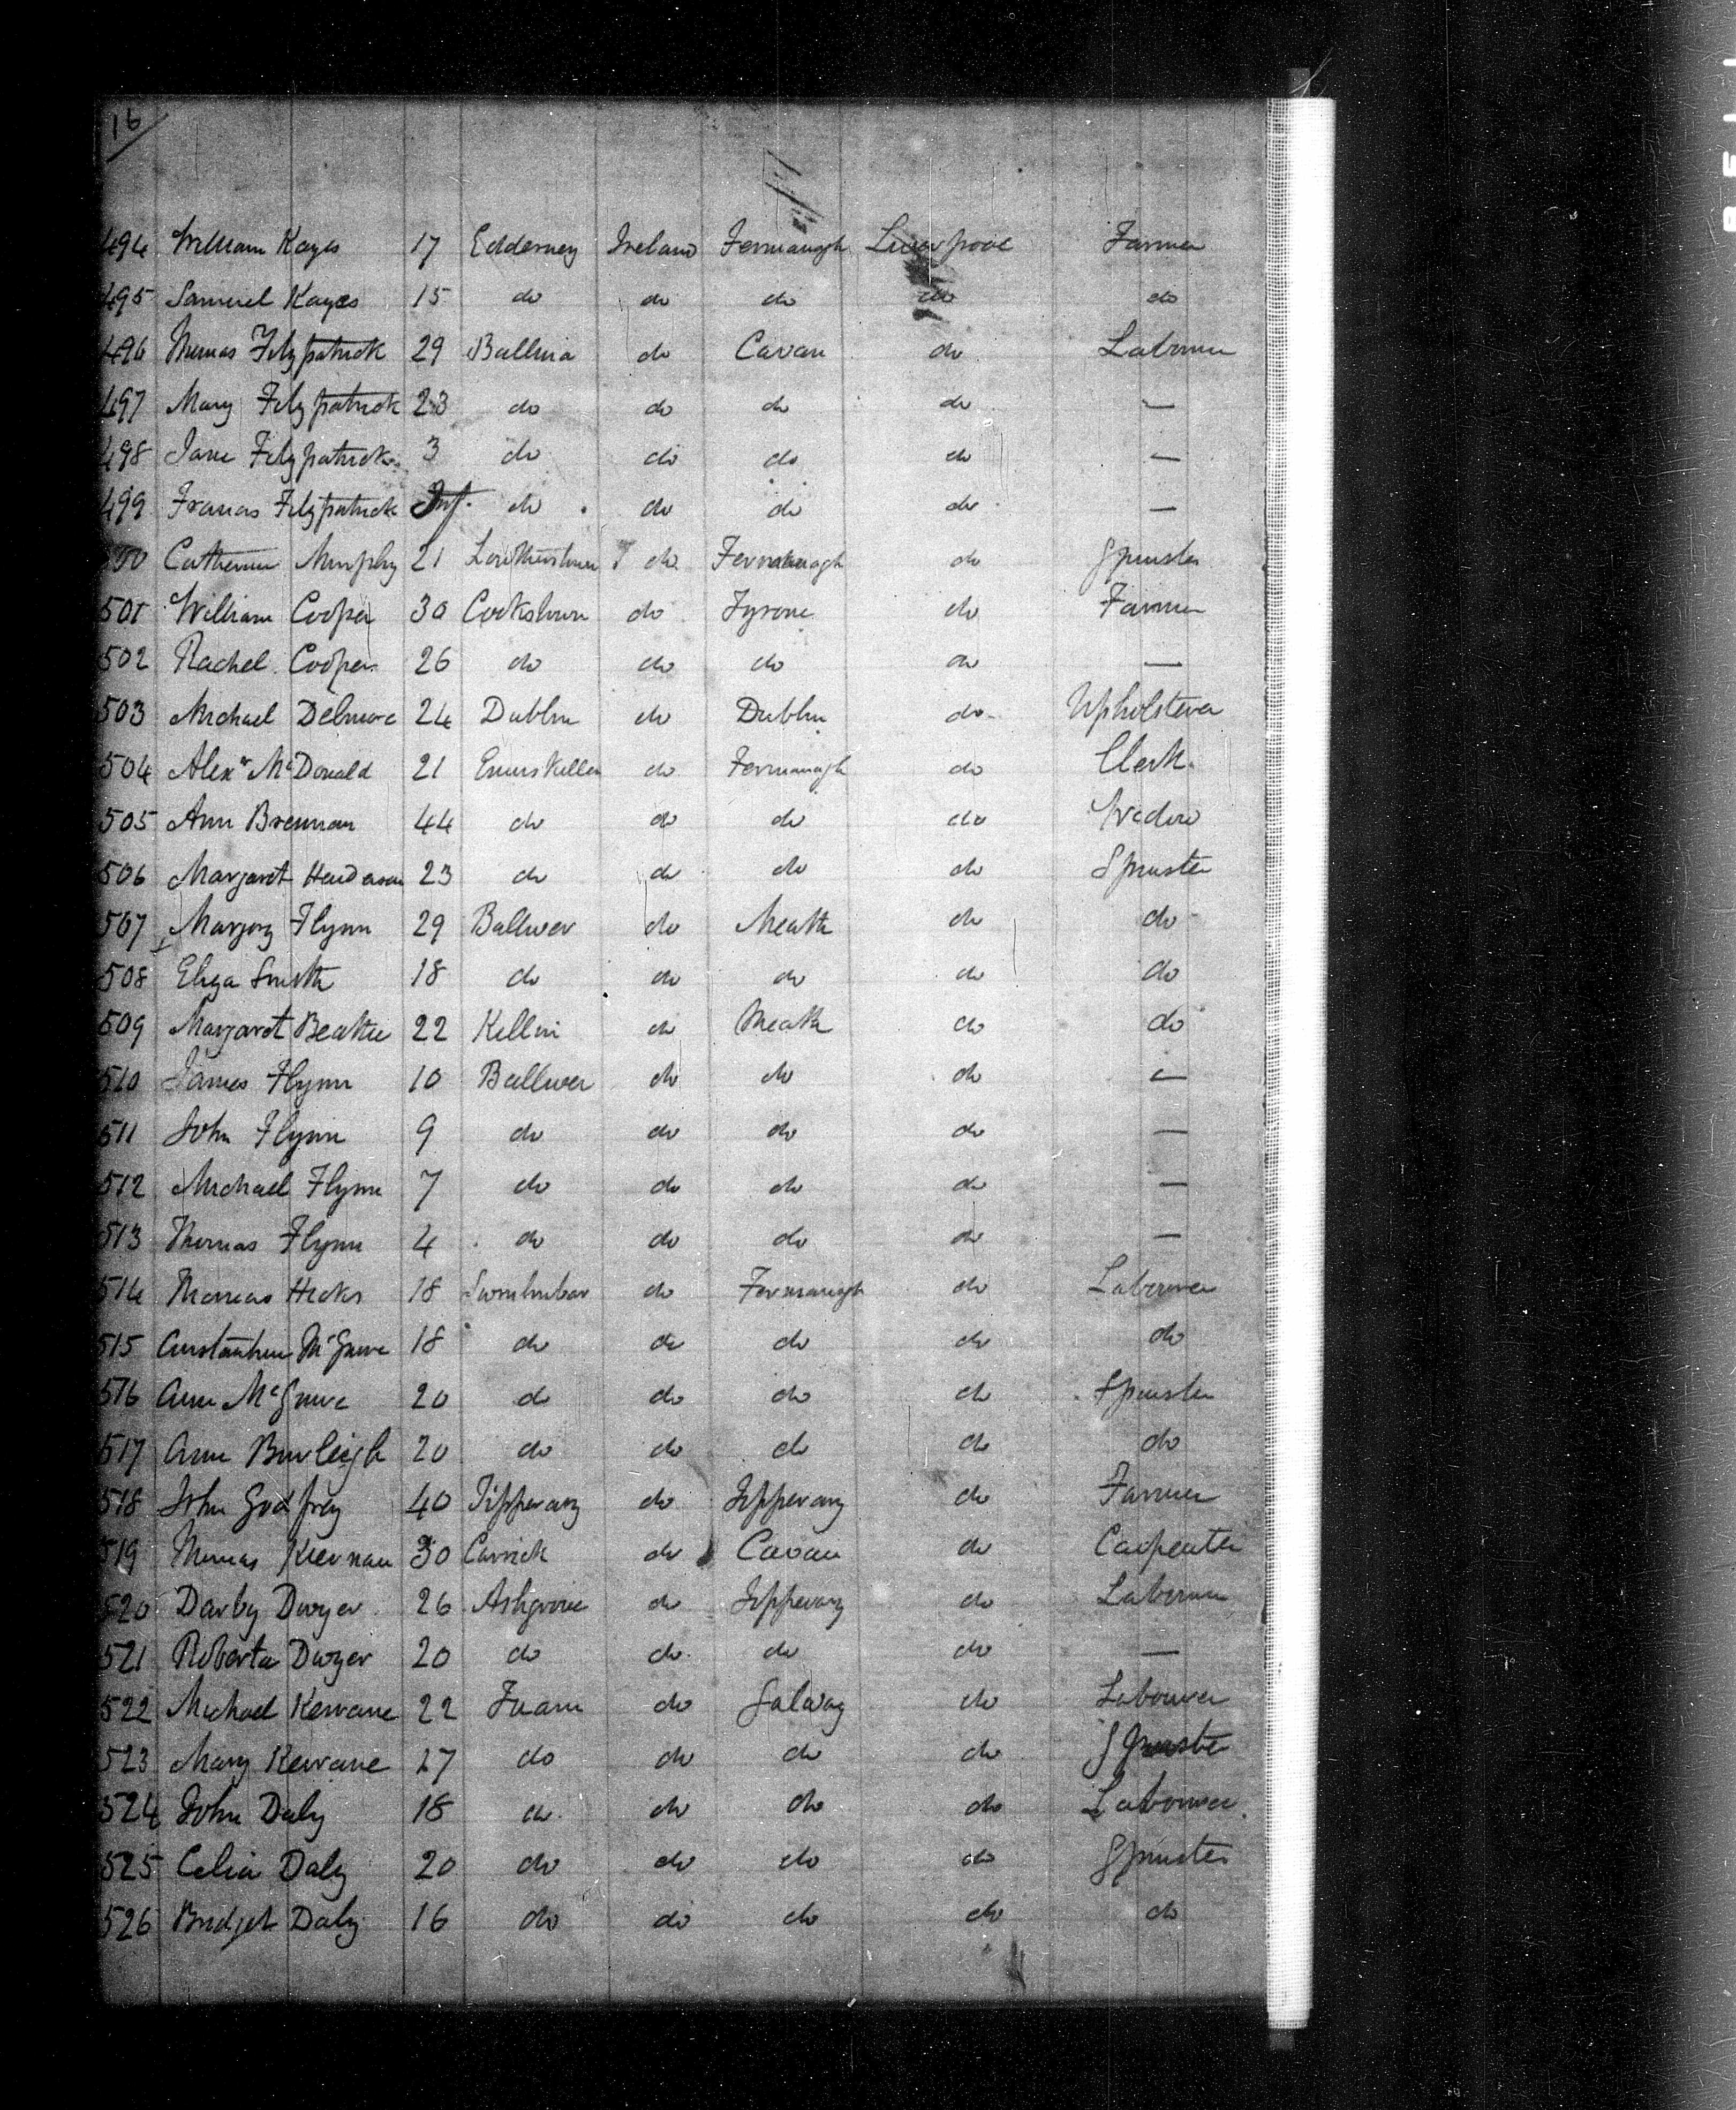 16
494 William Kayes 17 Edderney Ireland Fermanagh Liverpool Farmer
495 Samuel Kayes 15 do do do do do
496 Thomas Fitzpatrick 29 Ballina do Cavan do Labourer
497 Mary Fitzpatrick 23 do do do do —
498 Jane Fitzpatrick 3 do do do do —
499 Francis Fitzpatrick Inf. do do do do —
500 Catherine Murphy 21 Lowtherstown do Fermanagh do Spinster
501 William Cooper 30 Cookstown do Tyrone do Farmer
502 Rachel Cooper 26 do do do do —
503 Michael Delmore 24 Dublin do Dublin do Upholsterer
504 Alexr McDonald 21 Enniskillen do Fermanagh do Clerk
505 Ann Brennan 44 do do do do Widow
506 Margaret Henderson 23 do do do do Spinster
507 Marjory Flynn 29 Ballwer do Meath do do
508 Eliza Smith 18 do do do do do
509 Margaret Beattie 22 Kellin do Meath do do
510 James Flynn 10 Ballwer do do do —
511 John Flynn 9 do do do do —
512 Michael Flynn 7 do do do do —
513 Thomas Flynn 4 do do do do —
514 Thomas Hicks 18 Swanlinbar do Fermanagh do Labourer
515 McGuire 18 do do do do do
516 Ann McGuire 20 do do do do Spinster
517 Ann Burleigh 20 do do do do do
518 John Godfrey 40 Tipperary do Tipperary do Farmer
519 Thomas Kiernan 30 Carrick do Cavan do Carpenter
520 Darby Dwyer 26 Ashgrove do Tipperary do Labourer
521 Roberta Dwyer 20 do do do do —
522 Michael Kervane 22 Tuam do Galway do Labourer
523 Mary Kervane 27 do do do do Spinster
524 John Daly 18 do do do do Labourer
525 Celia Daly 20 do do do do Spinster
526 Bridget Daly 16 do do do do do